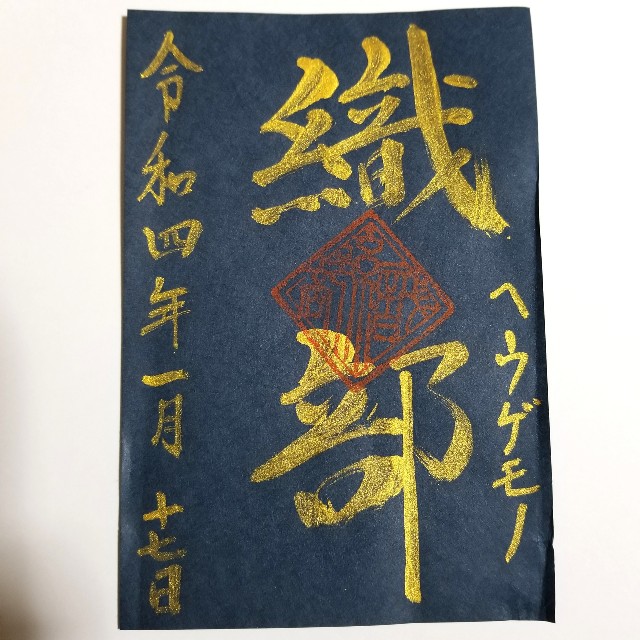 ヘウゲモノ
織部
令和四年一月十七日